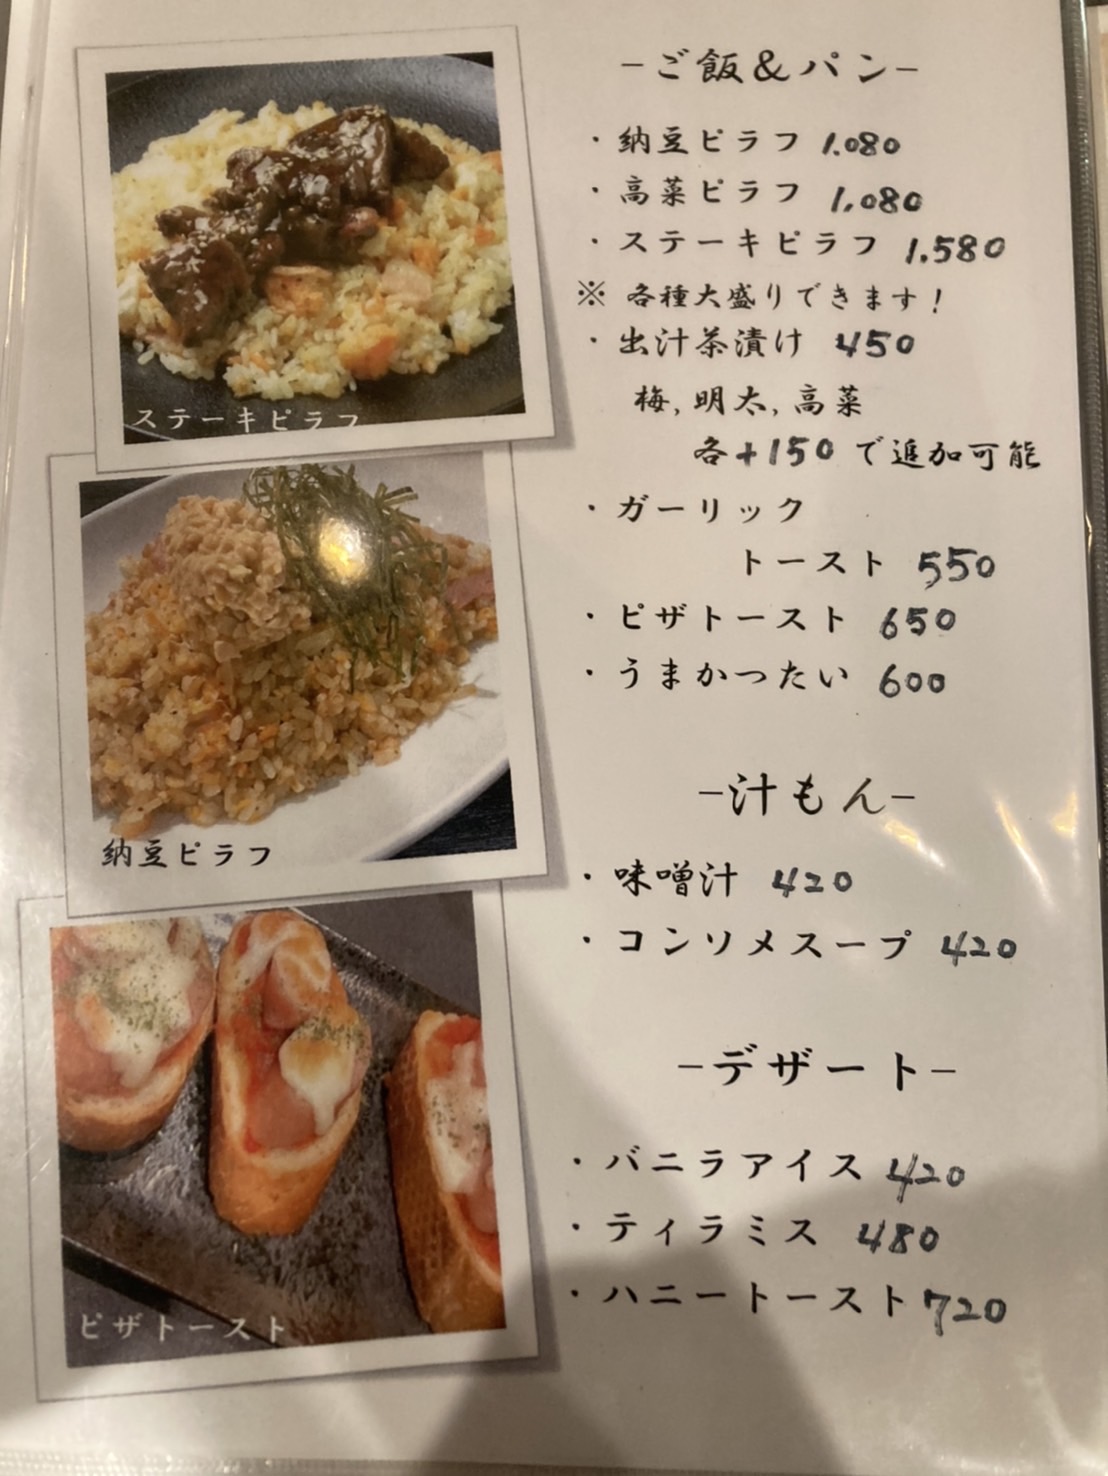 -ご飯&パン-
・納豆ピラフ 1.080
・高菜ピラフ 1,080
・ステーキピラフ 1.580
※ 各種大盛りできます!
・出汁茶漬け 450
梅,明太,高菜
各+150で追加可能
・ガーリック
トースト 550
・ピザトースト 650
・うまかつたい 600
-汁もん-
・味噌汁 420
・コンソメスープ 420
-デザート-
・バニラアイス 420
・ティラミス 480
・ハニートースト 720
ステーキピラフ
納豆ピラフ
ピザトースト